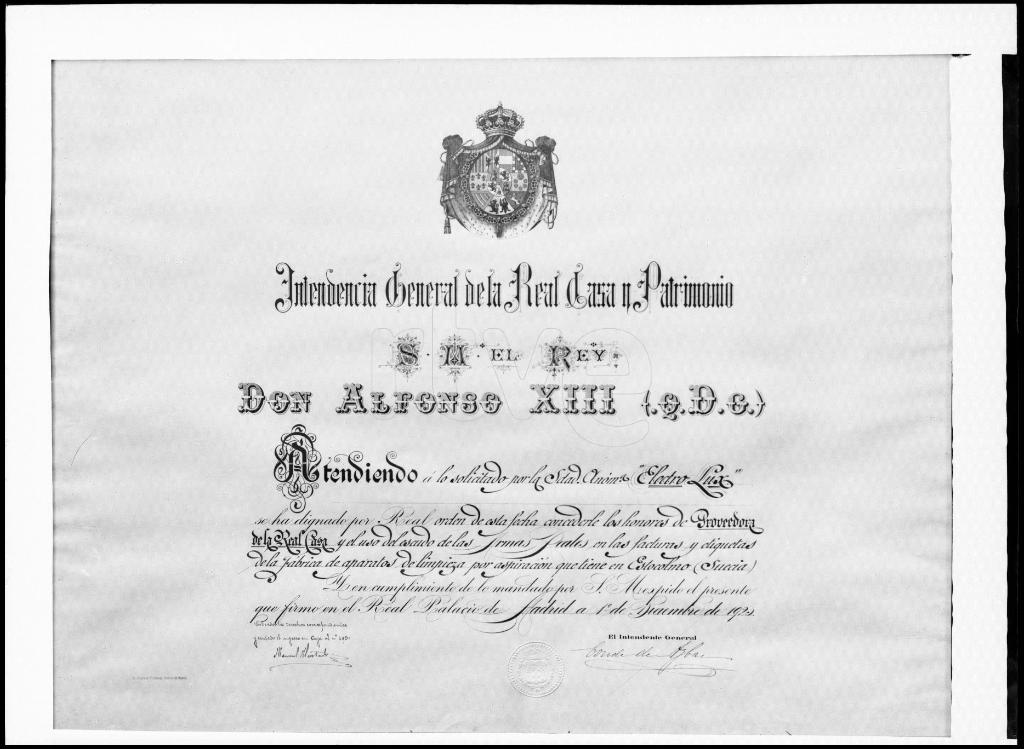 Intendencia General de la Real Casa y Patrimonio
S. M. EL REY
DON ALFONSO XIII (.Q.D.G.)
Atendiendo á lo solicitado por la Sdad. Anónma "Electro Lux"
se ha dignado por Real orden de esta fecha concederle los honores de Proveedora
de la Real Casa y el uso del escudo de las Armas Reales en las facturas y etiquetas
de la fabrica de aparatos de limpieza por aspiración que tiene en Estocolmo (Suecia)
Y en cumplimiento de lo mandado por S. M. expido el presente
que firmo en el Real Palacio de Madrid a 1º de Diciembre de 192
El Intendente General
Conde de
Manuel
rtve